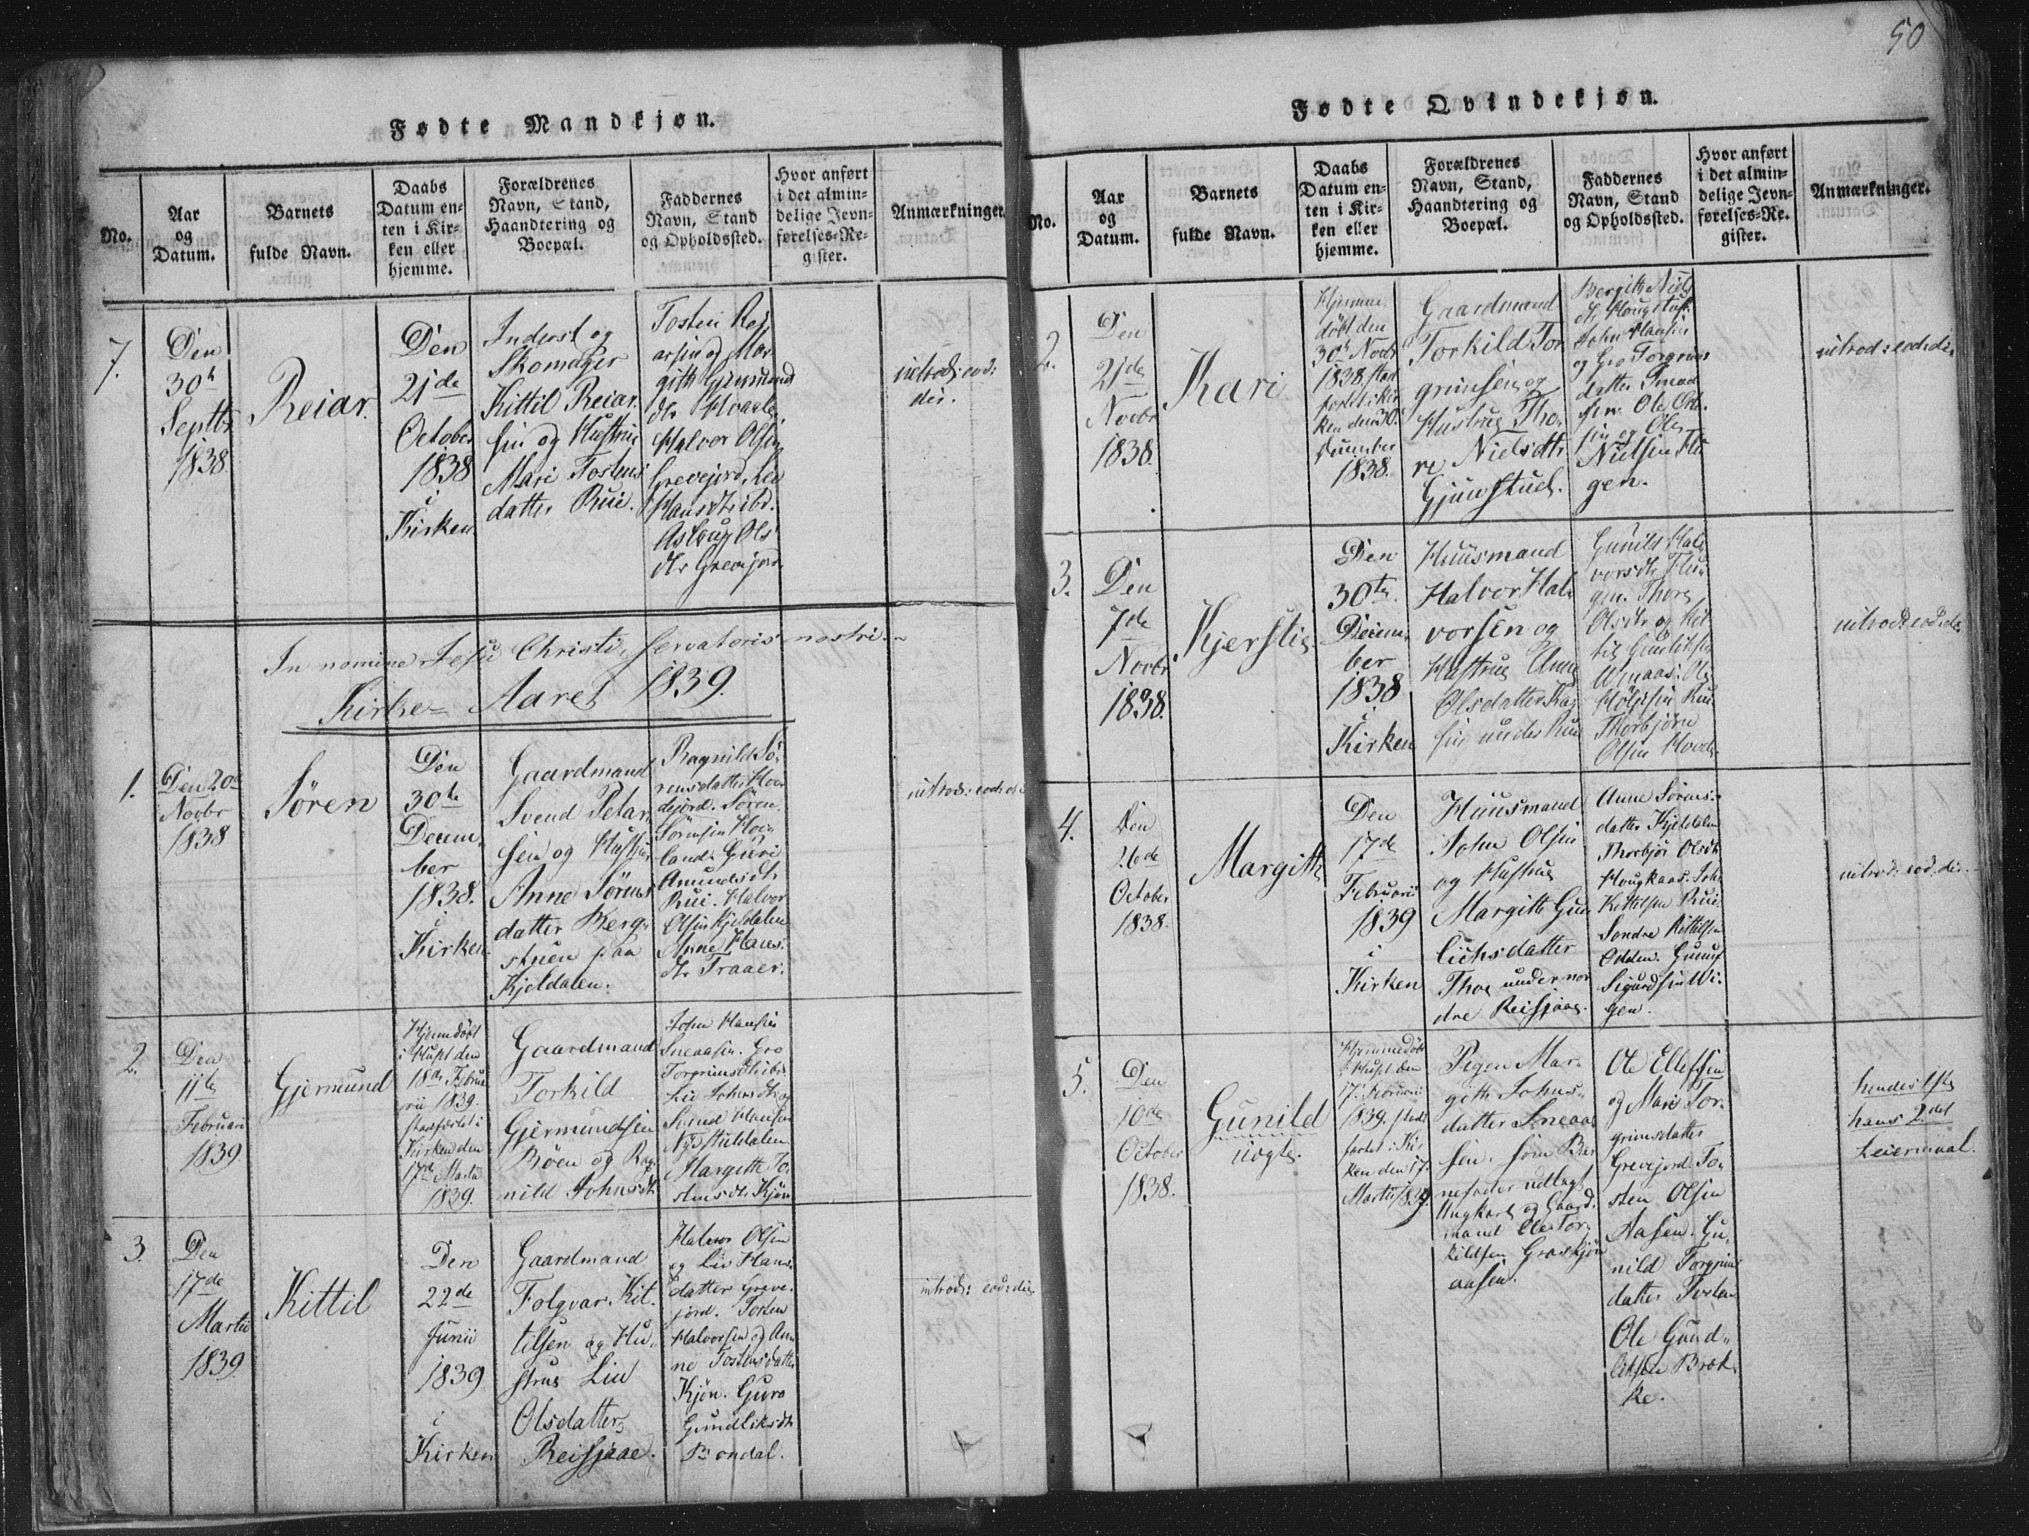 50
Fødte Mandkjøn.
No.
Aar
og
Datum.
Barnets
fulde Navn.
Daabs
Datum en-
ten i Kir-
ken eller
hjemme.
Forældrenes
Navn, Stand,
Haandtering og
Boepæl.
Faddernes
Navn, Stand
og Opholdssted.
Hvor anført
i det almin-
delige Jevn-
førelses-Re-
gister.
Anmærkninger.
7.
Den
30h
Septbr
1838.
Reiar.
Den
21de
October
1838
i
Kirken
Inderst og
Skomager
Kittil Reiar-
sen og Hustrue
Mari Tostens
datter Rui.
Tosten Rei
arsen og Mar
gith Gjermund
dtr Hvaale
Halvor Olsen
Grevejord, Liv
Hansdtr ibd.
Aslaug Ols
dtr Grevejord
introd: eod:
die.
In nomine Jesu Christi, servatoris nostri.
Kirke-Aaret 1839.
1.
Den 20de
Novbr
1838
Søren
Den
30te
Decem-
ber
1838.
i
Kirken
Gaardmand
Svend Petar
sen og Hustrue
Anne Sørens
datter Berg-
stuen paa
Kjeldalen.
Ragnild Sø-
rensdatter Hove
dejord. Søren
Sørensen Hov-
land. Guri
Amundsdtr
Rui. Halvor
Olsen Kjeldalen
Anne Hans-
dtr Traaer.
introd: eod: die
2.
Den
11te
Februari
1839.
Gjermund
Hjemmedøbt
i Huset den
18de Februa
rii 1839.
stadfæstet i
Kirken den
17de Martii
1839.
Gaardmand
Torkild
Gjermundsen
Bøen og Rag
nild Johnsdtr
John Hansen
Sneaasen. Gro
Torgrimsdtr ibd.
Liv Johnsdtr og
Svend Hansen
Nystuldalen
Margith To-
stensdtr Kjøn
3.
Den
17de
Martii
1839
Kittil
Den
22de
Junii
1839
i
Kirken
Gaardmand
Folqvar Kit-
tilsen og Hu-
strue Liv
Olsdatter
Reisjaae.
Halvor Olsen
og Liv Hans-
datter Greve-
jord. Tosten
Halvorsen og An-
ne Tostensdatter
Kjøn. Guro
Gundleiksdtr
Bondal.
introd: eod: die.
Fødte Qvindekjøn.
No.
Aar
og
Datum.
Barnets
fulde Navn.
Daabs
Datum en-
ten i Kir-
ken eller
hjemme.
Forældrenes
Navn, Stand,
Haandtering og
Boepæl.
Faddernes
Navn, Stand
og Opholdssted.
Hvor anført
i det almin-
delige Jevn-
førelses-Re-
gister.
Anmærkninger.
2.
Den
21de
Novbr
1838.
Kari
Hjemme
døbt den
30h Novbr
1838. stad
fæstet i Kir
ken den 30
December
1838.
Gaardmand
Torkild Tor
grimsen og
Hustrue Tho-
re Nielsdtr
Gjuvstud.
Bergith Niels
dtr Haugstul
John Hansen
og Gro Torgrims
datter
Ole
sen og Ole
Nielsen Flu
gen.
introd: eod: die.
3.
Den
7de
Novbr
1838.
Kjerstie
Den
30te
Decem-
ber
1838
i
Kirken
Huusmand
Halvor Hal-
vorsen og
Hustrue Anne
Olsdatter
under Rui
Gunild Hal-
vorsdtr Flu-
gen. Thore
Olsdtr og Kit
til Gundliksen
Ole
Rui
Thorbjørn
Olsen Hovde
introd: eod: die
4.
Den
26de
October
1838.
Margith
Den
17de
Februarii
1839
i
Kirken
Huusmand
John Olsen
og Hustrue
Margith Gun
lichsdatter
Thoe under nor
dre Reisjaae.
Anne Sørens-
datter Kjeldalen
Thorbjør Olsdtr
Haugkaas. Joh.
Kittelsen Rui
Sondre Kittilsen
Odden. Gunuf
Sigurdsen Wi-
gen.
introd: eod: die.
5.
Den
10de
October
1838.
Gunild
uegte.
Hjemmedøbt
i Huset den
17. Februarii
1839. stad
fæstet i Kir
ken den 17.
Martii 1839.
Pigen Mar-
gith Johns-
datter Sneaa
sen. som Bar
nefader udlagt
Ungkarl og Gaard-
mand Ole Tor-
kildsen Graskjøn
aasen.
Ole Ellefsen
og Mari Tor-
grimsdatter
Grevejord. To-
sten Olsen
Aasen. Gu-
nild Torgrims
datter Tosten
Ole Gund-
liksen Bræk-
ke.
hendes 1ste
hans 2det
Leiermaal.